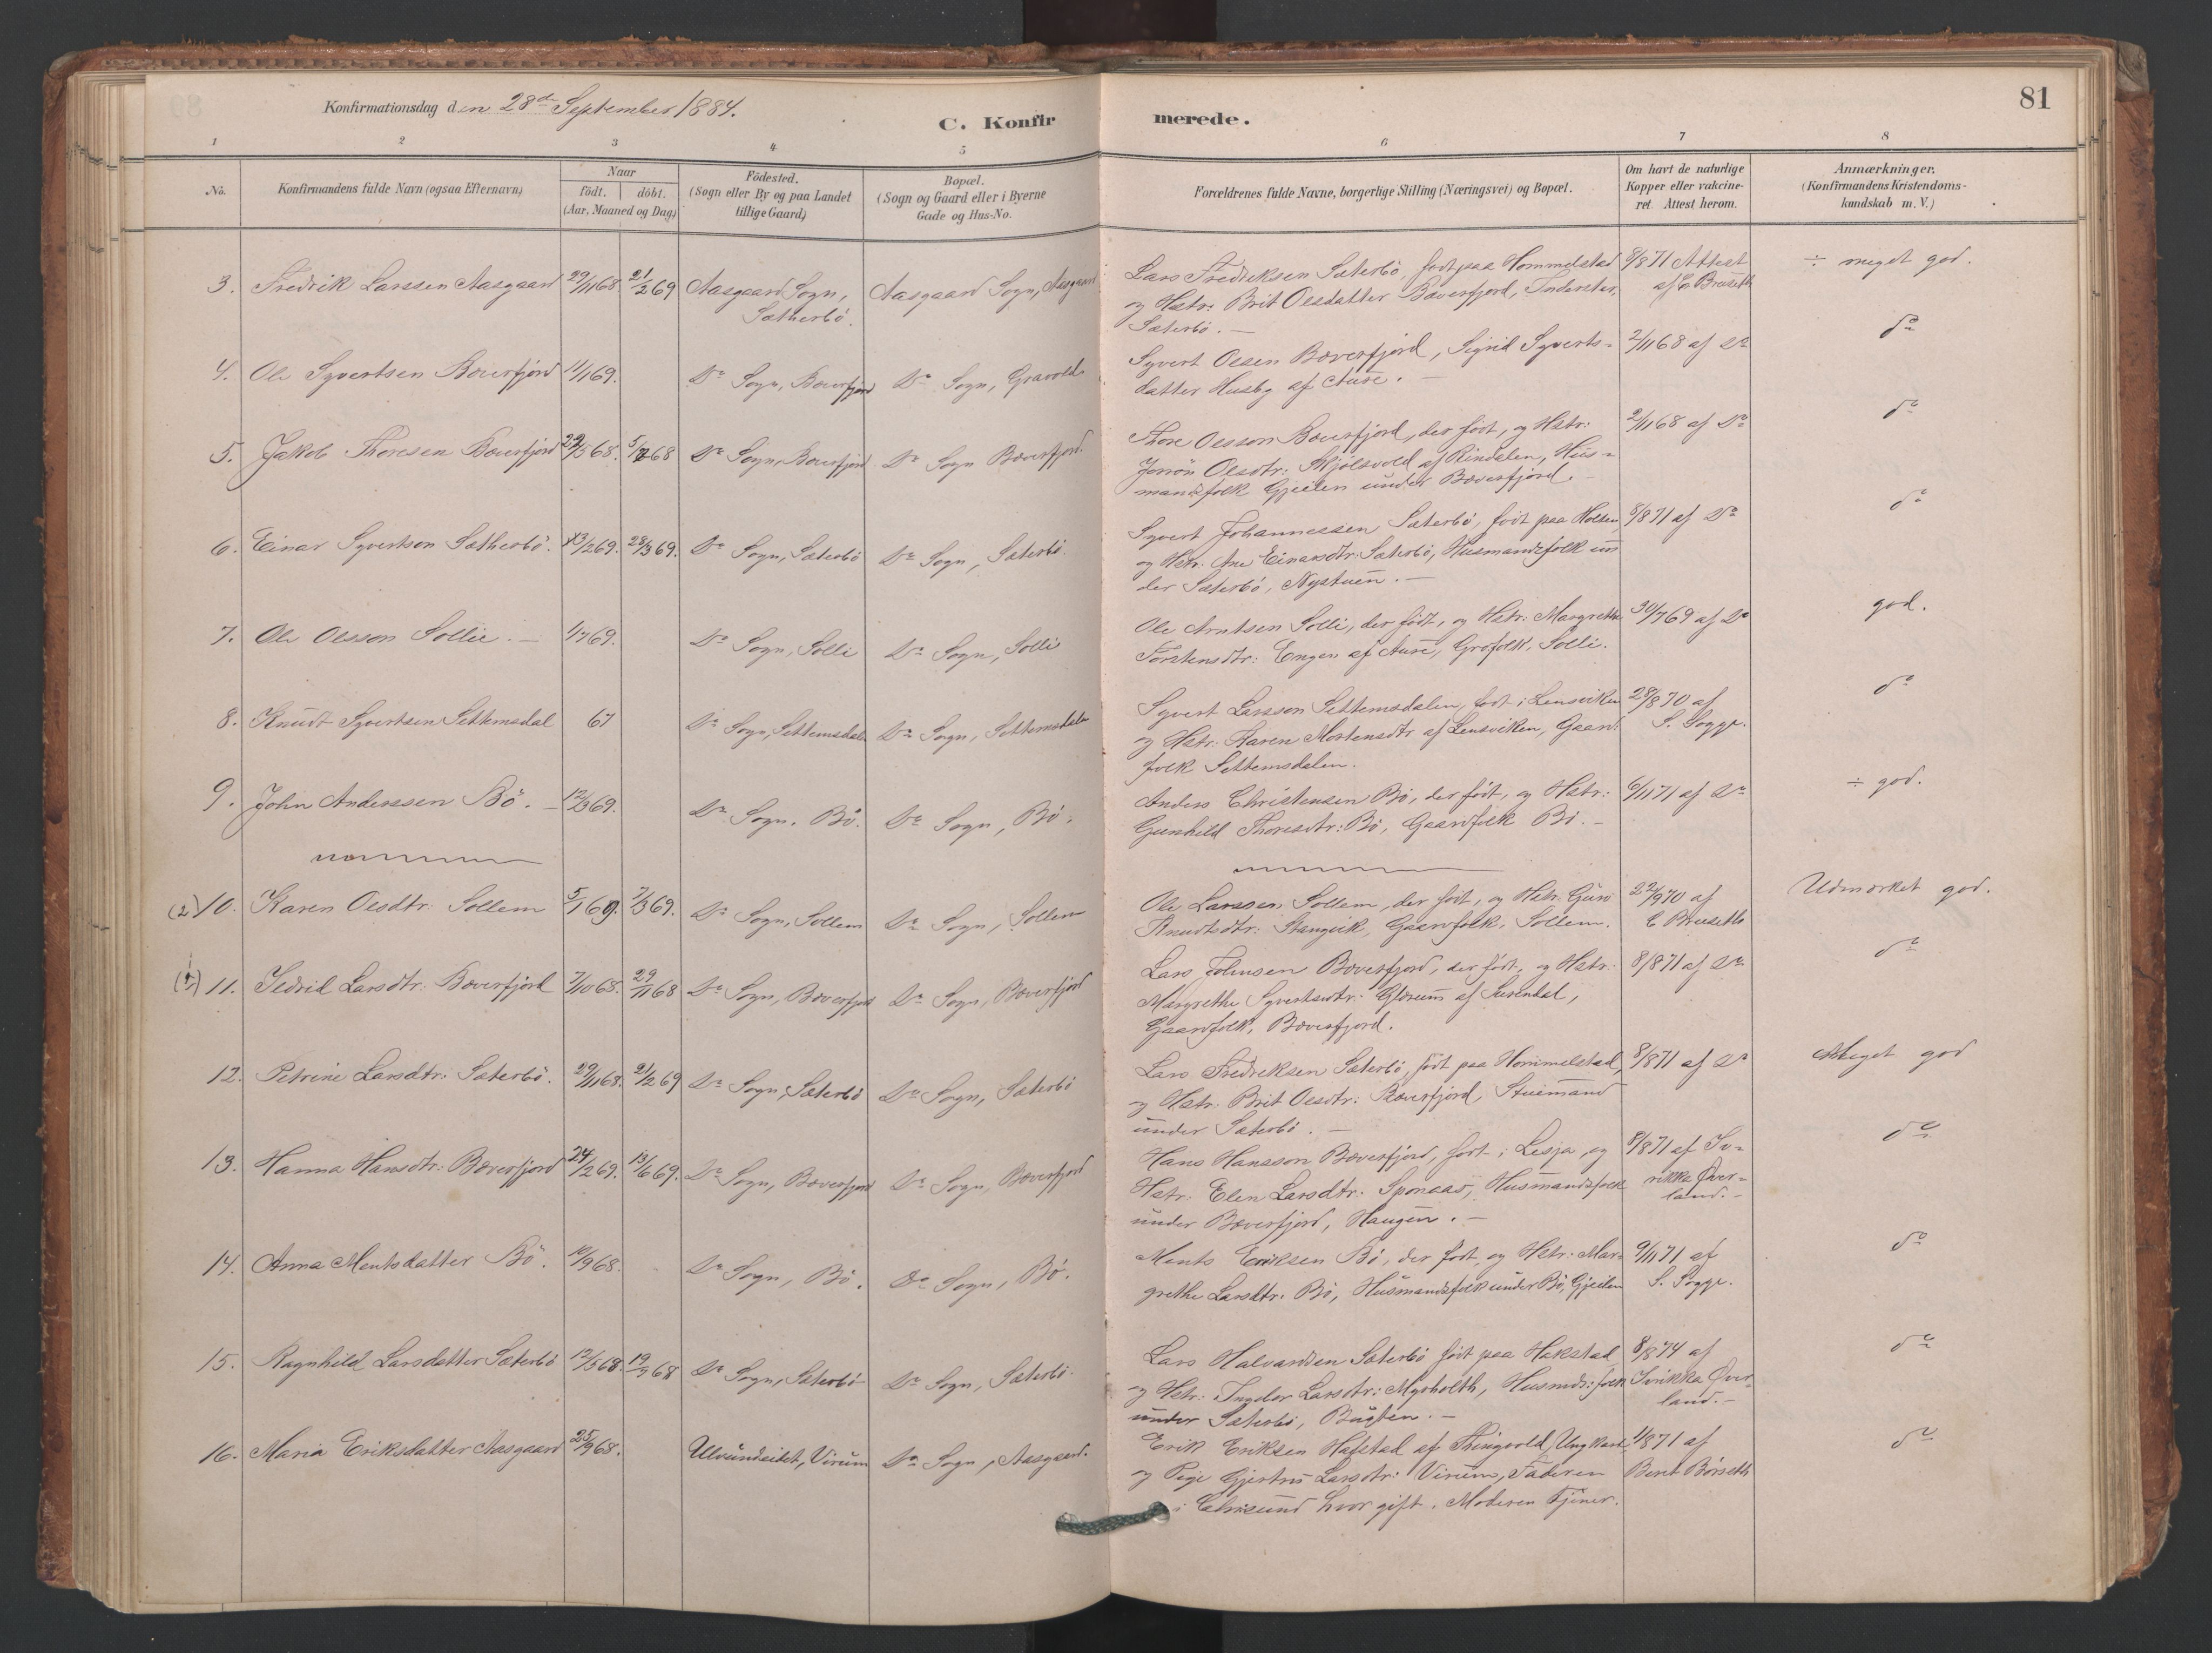 Konfirmationsdag den 28de September 1884.
C. Konfirmerede.
81
1 2 3 4 5 6 7 8
No.
Konfirmandens fulde Navn (ogsaa Efternavn)
Naar
födt. döbt.
(Aar, Maaned og Dag)
Födested.
(Sogn eller By og paa Landet
tillige Gaard)
Bopæl.
(Sogn og Gaard eller i Byerne
Gade og Hus-No.
Forældrenes fulde Navne, borgerlige Stilling (Næringsvei) og Bopæl.
Om havt de naturlige
Kopper eller vakcine-
ret. Attest herom.
Anmærkninger.
(Konfirmandens Kristendoms-
kundskab m. V.)
3. Fredrik Larssen Aasgaard 29/11 68 21/2 69 Aasgaard Sogn, Aasgaard Sogn, Aasgaard
Sætherbö.
Lars Fredriksen Sæterbö, födt paa Hommelstad 8/8 71 Attest ÷ meget god.
og Hstr: Brit Olesdatter Bæverfjord, Inderster, af E Bruseth
Sæterbö. —
4. Ole Syvertsen Bæverfjord 11/1 69. Do Sogn, Bæverfjord Do Sogn, Gravvold
Syvert Olesen Bæverfjord, Sigrid Syverts- 2/11 68 af Do do
datter Husby af Aure. —
5. Jakob Thoresen Bæverfjord 22/5 68. 5/7 68 Do Sogn, Bæverfjord Do Sogn Bæverfjord.
Thore Olesson Bæverfjord, der födt, og Hstr: 2/11 68 af Do do
Olesdtr: af Rindalen, Hus-
mandsfolk Gjeilen under Bæverfjord. —
6. Einar Syvertsen Sætherbö. 13/2 69. 28/3 69. Do Sogn, Sæterbö Do Sogn, Sæterbö.
Syvert Johannessen Sæterbö, födt paa Holten 8/8 71 af Do do
og Hstr. Ane Einarsdtr: Sæterbö, Husmandsfolk un
der Sæterbö, Nystuen. —
7. Ole Olsson Sollie. — 1/7 69. Do Sogn, Solli Do Sogn, Solli
Ole Arntsen Solli, der födt, og Hstr: Margrethe 30/7 69 af Do god.
Torstensdtr: Engen af Aure, Grdfolk, Solli.
8. Knudt Syvertsen Settemsdal 67 Do Sogn, Settemsdalen Do Sogn, Settemsdalen
Syvert Larsson Settemsdalen, födt i Lensviken 28/8 70 af do
og Hstr: Karen Mortensdtr af Lensviken, Gaard: S. Sogge.
folk Settemsdalen.
9. John Anderssen Bö. — 12/3 69. Do Sogn. Bö. Do Sogn, Bö.
Anders Christensen Bö, der födt, og Hstr: 6/11 71 af Do ÷ god.
Gunhild Thoresdtr: Bö, Gaardfolk Bö. —
(2) 10. Karen Olesdtr: Sollem 5/1 69. 7/3 69. Do Sogn, Sollem Do Sogn, Sollem
Ole Larssen Sollem, der födt, og Hstr: Guro 22/9 70 af Udmærket god.
Knudtsdtr: Stangvik, Gaardfolk, Sollem. E Bruseth
(1) 11. Sedsil Larsdtr: Bæverfjord 7/10 68. 29/11 68 Do Sogn, Bæverfjord Do Sogn, Bæverfjord
Lars Johnsen Bæverfjord, der födt, og Hstr: 8/8 71 af Do do
Margrethe Syvertsdtr: Glærum af Surendal,
Gaardfolk, Bæverfjord.
12. Petrine Larsdtr: Sæterbö. 29/11 68. 21/2 69 Do Sogn, Sæterbö Do Sogn, Sæterbö
Lars Fredriksen Sæterbö, födt paa Hommelstad, 8/8 71 af Do Meget god
og Hstr: Brit Olesdtr: Bæverfjord, Stuemand
under Sæterbö. —
13. Hanna Hansdtr: Bæverfjord 24/2 69. 13/6 69. Do Sogn, Bæverfjord Do Sogn, Bæverfjord
Hans Hansson Bæverfjord, födt i Lesja, og 8/8 71 af Iv- do
Hstr: Elen Larsdtr: Sponaas, Husmandsfolk rikka Över-
under Bæverfjord, Haugen. — land. —
14. Anna Mentsdatter Bö. 10/9 68. Do Sogn, Bö. Do Sogn, Bö.
Ments Eriksen Bö, der födt, og Hstr: Mar- 9/11 71 af do
grethe Larsdtr: Bö, Husmandsfolk under Bö, Gjeilen S. Sogge.
15. Ragnhild Larsdatter Sæterbö 12/5 68. 19/9 68 Do Sogn, Sæterbö Do Sogn, Sæterbö.
Lars Halvardsen Sæterbö födt paa Hakstad 8/8 74 af do
og Hstr: Ingebor Larsdtr: Myrholth, Husmds: folk Ivrikka Över-
under Sæterbö, Bugten. — land. —
16. Maria Eriksdatter Aasgaard 25/9 68. Ulvundeidet, Virum Do Sogn, Aasgaard.
Erik Eriksen Hafstad af Thingvold, Ungkarl 1/8 71 af do
og Pige Gjertru Larsdtr: Virum, Faderen Berit Börseth
i Chrsund hvor gift. Moderen tjener.